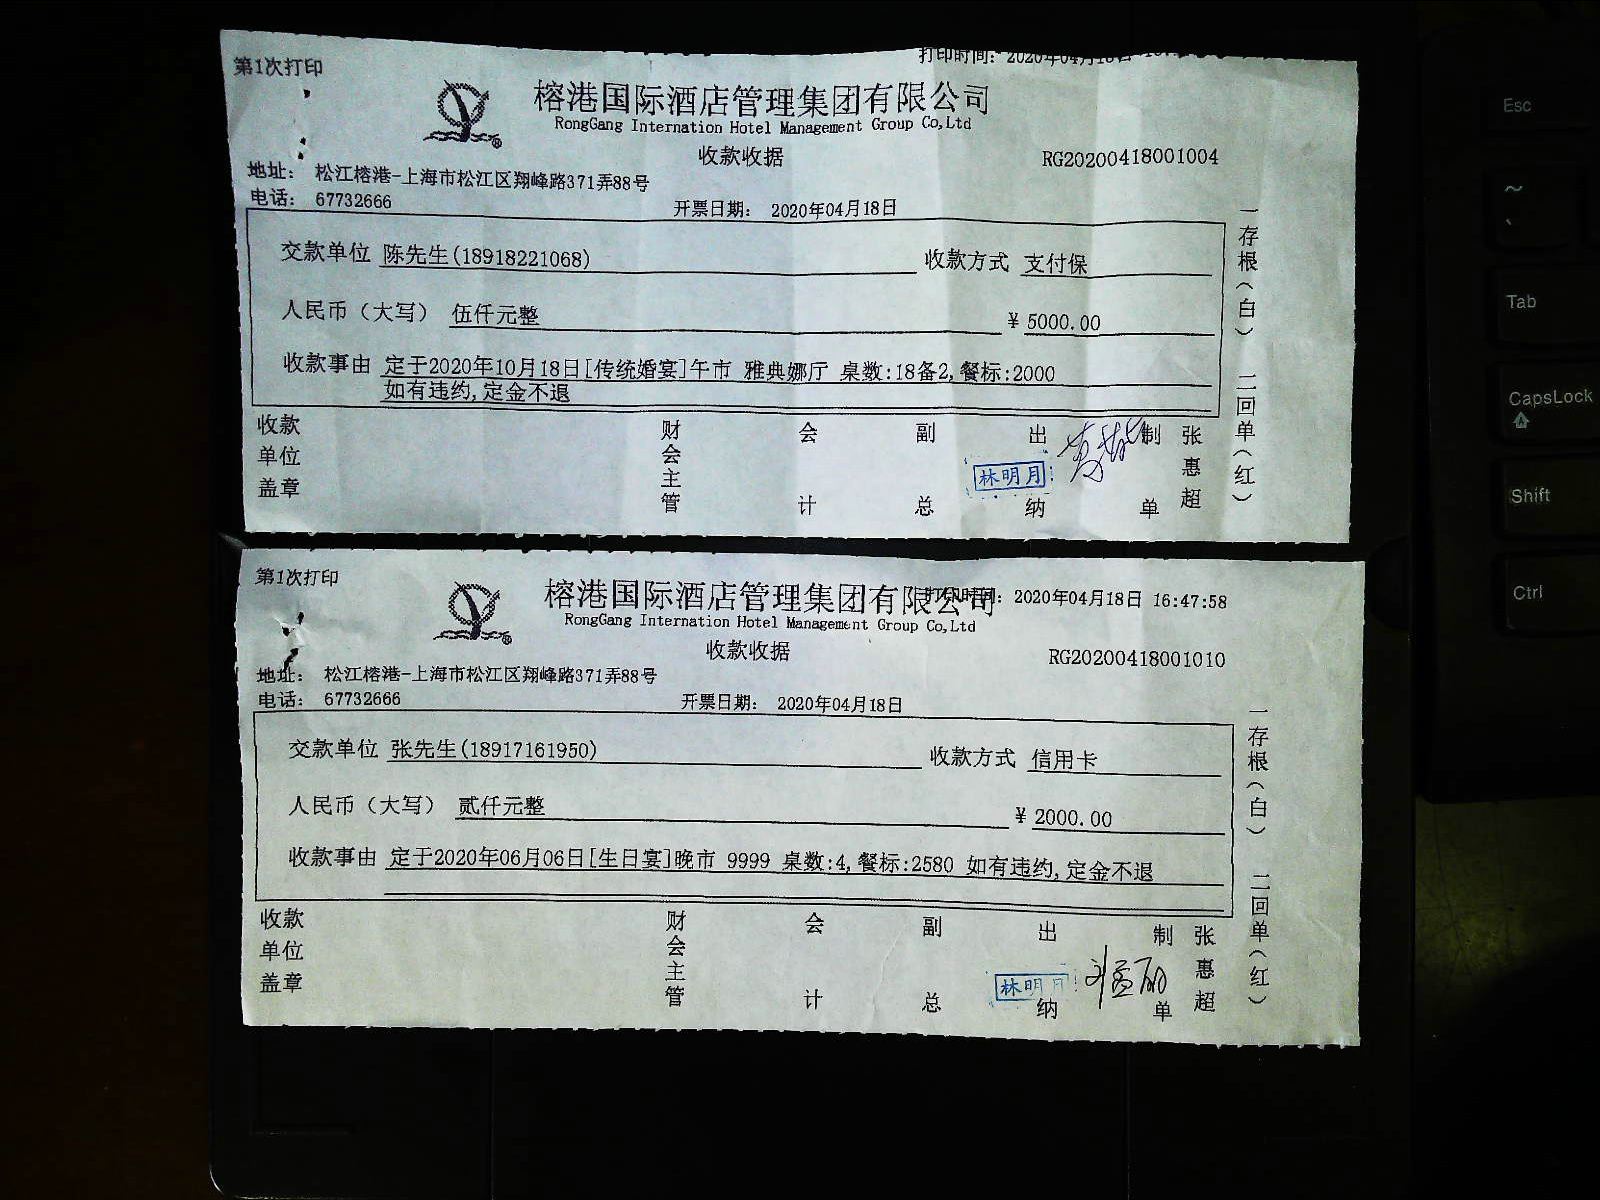 第1次打印
打印时间: 2020年04月18日
榕港国际酒店管理集团有限公司
RongGang Internation Hotel Management Group Co,Ltd
收款收据
RG20200418001004
地址: 松江榕港-上海市松江区翔峰路371弄88号
电话: 67732666
开票日期: 2020年04月18日
交款单位 陈先生(18918221068) 收款方式 支付保
人民币(大写) 伍仟元整 ¥ 5000.00
收款事由 定于2020年10月18日[传统婚宴]午市 雅典娜厅 桌数:18备2,餐标:2000
如有违约,定金不退
收款单位盖章 财会主管 会计 副总 出纳 林明月 制单 张惠超
一存根(白) 二回单(红)
第1次打印
打印时间: 2020年04月18日 16:47:58
榕港国际酒店管理集团有限公司
RongGang Internation Hotel Management Group Co,Ltd
收款收据
RG20200418001010
地址: 松江榕港-上海市松江区翔峰路371弄88号
电话: 67732666
开票日期: 2020年04月18日
交款单位 张先生(18917161950) 收款方式 信用卡
人民币(大写) 贰仟元整 ¥ 2000.00
收款事由 定于2020年06月06日[生日宴]晚市 9999 桌数:4,餐标:2580 如有违约,定金不退
收款单位盖章 财会主管 会计 副总 出纳 林明月 制单 张惠超
一存根(白) 二回单(红)
Esc
~
`
Tab
CapsLock
Shift
Ctrl